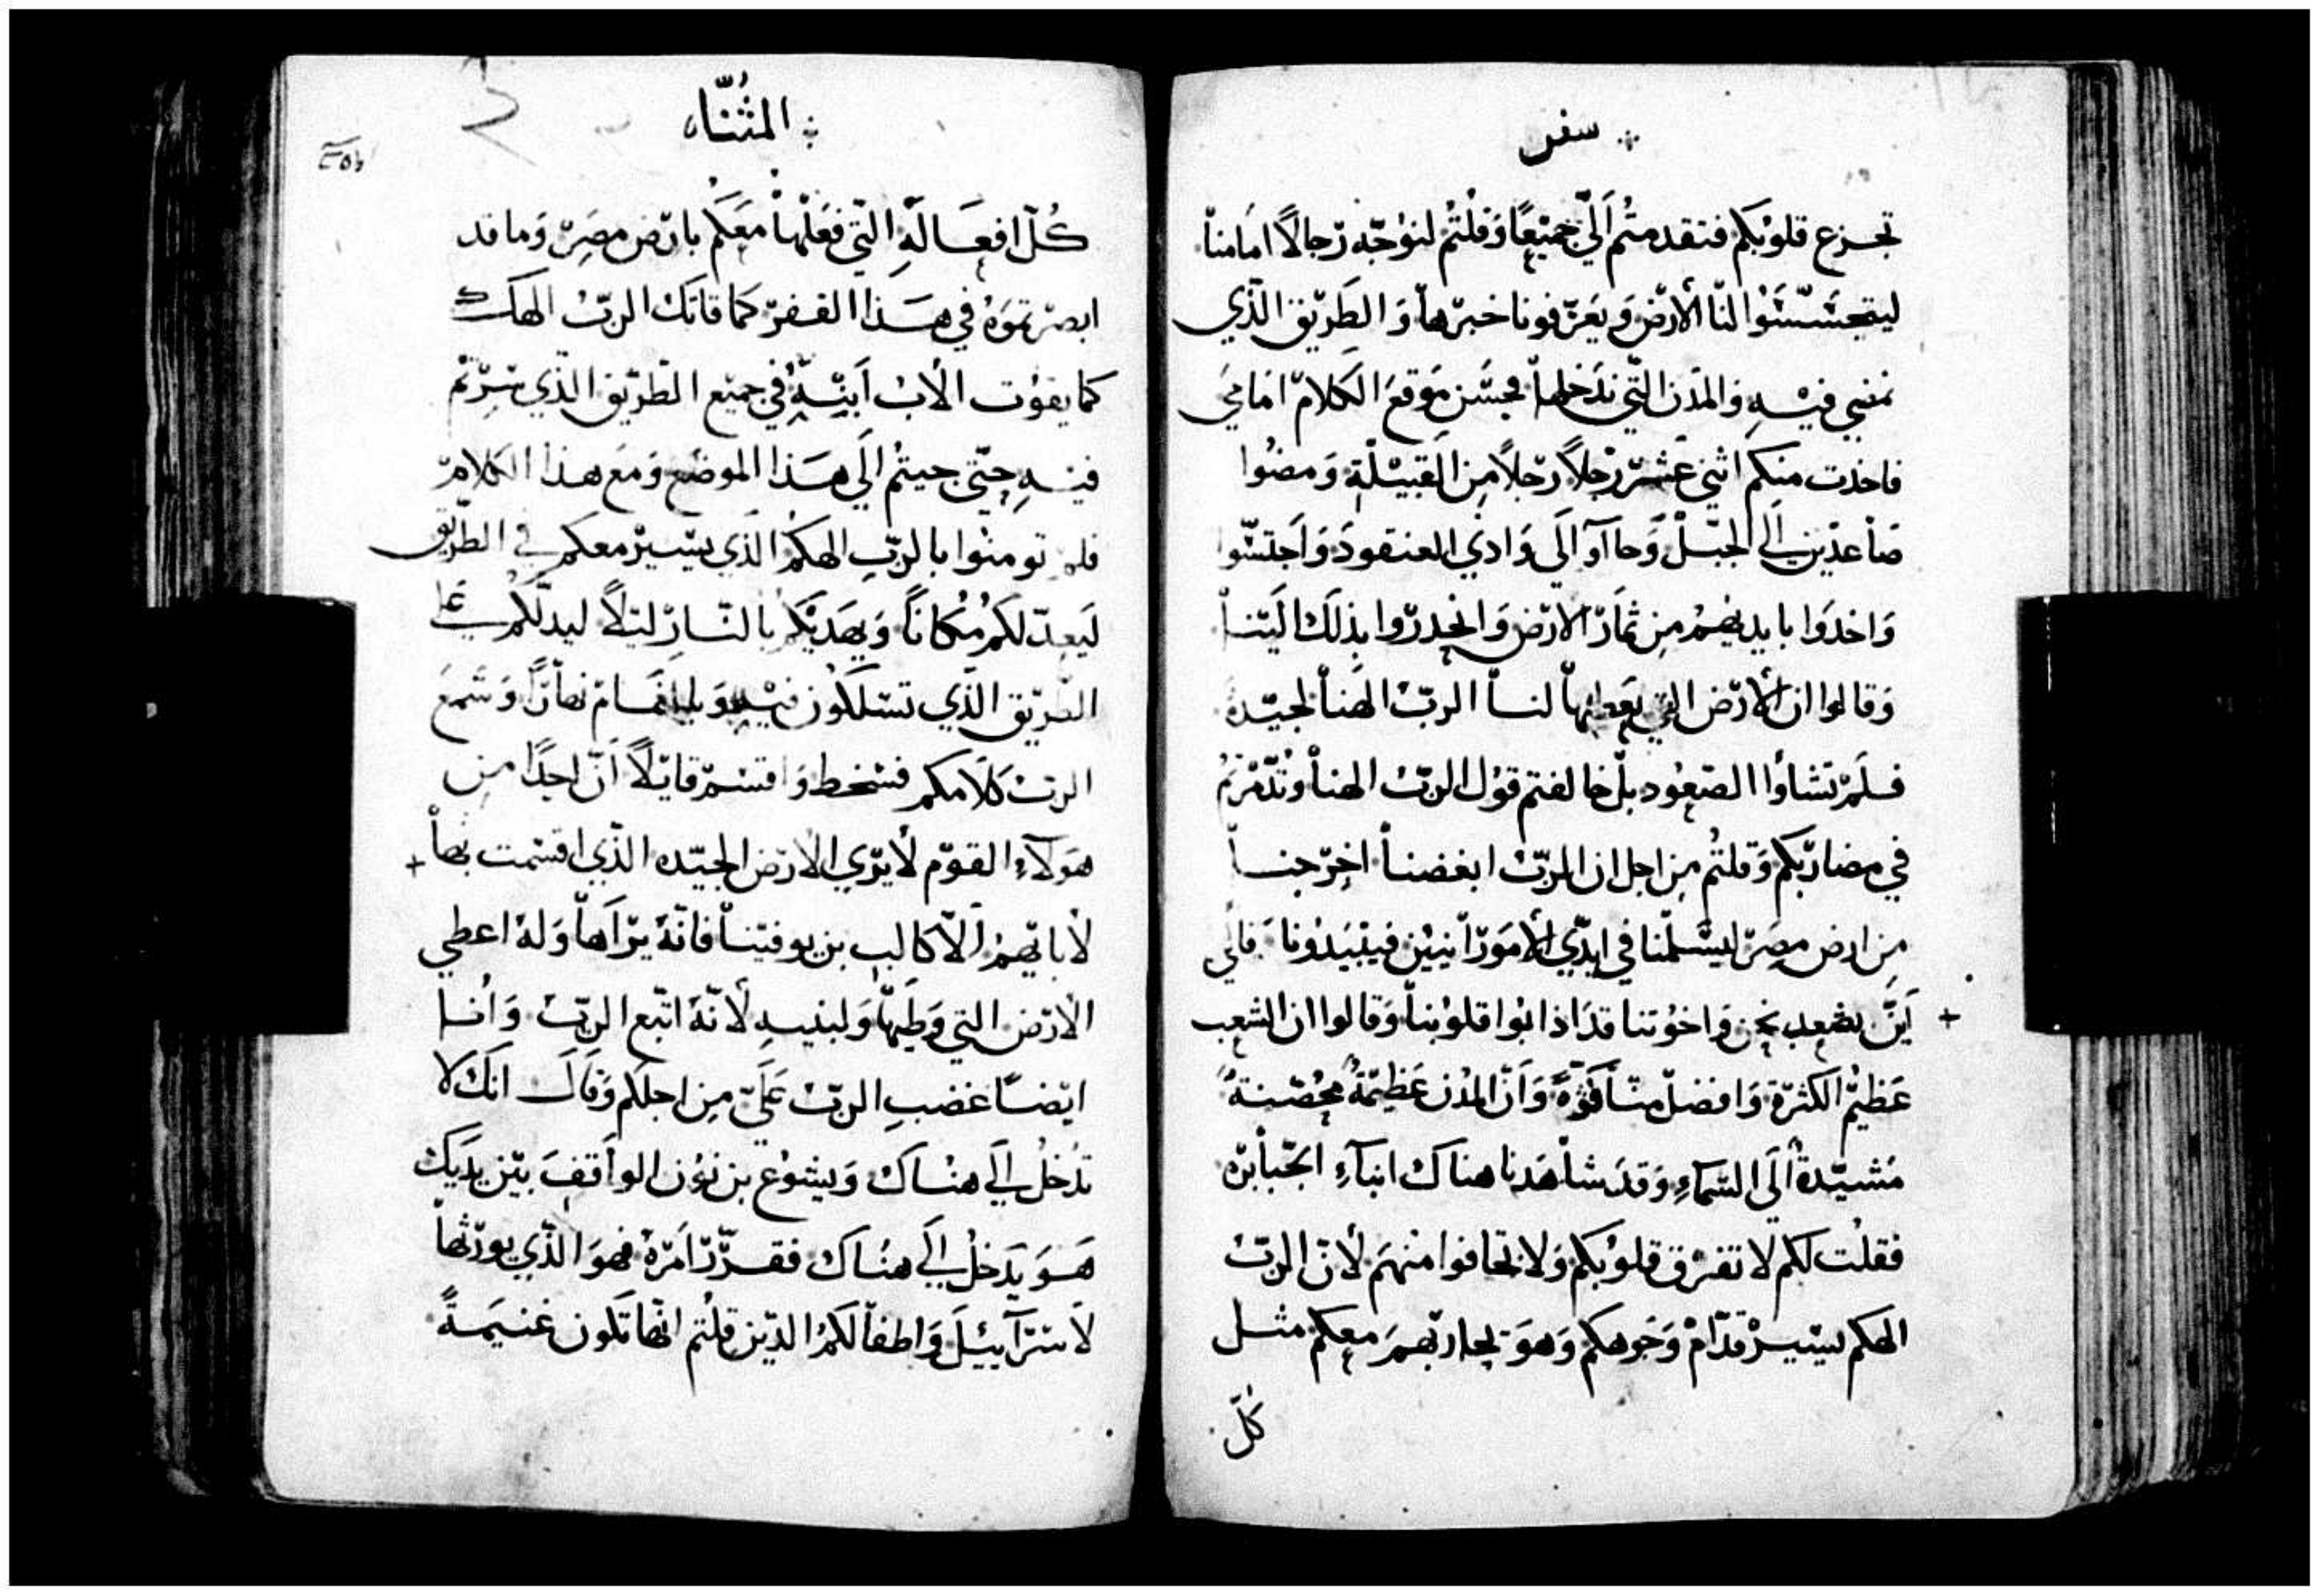 سفر
تجزع قلوبكم فتقدمتم اليّ جميعًا وقلتم لنوجّه رجالًا امامنا
ليتجسّسوا لنا الأرض ويعرّفونا خبرها والطريق الذي
نمضي فيه والمدن التي ندخلها فحسن موقع الكلام امامي
فاخذت منكم اثني عشر رجلاً رجلاً من القبيلة ومضوا
صاعدين الي الجبل وجاآوا الي وادي العنقود واجتسّوا
واخذوا بايديهم من ثمار الارض وانحدروا بذلك الينا
وقالوا ان الأرض التي يعطيها لنا الربّ الهنا لجيّدة
فلم تشاؤا الصعود بل خالفتم قول الربّ الهنا وتذمّرتم
في مضاربكم وقلتم من اجل ان الربّ ابغضنا اخرجنا
من ارض مصر ليسلّمنا في ايدي الأموّرانيين فيبيدونا فالي
+ اين نصعد نحن واخوتنا قد اذابوا قلوبنا وقالوا ان الشعب
عظيم الكثرة وافضل منّا قوّةً وانّ المدن عظيمةٌ محصّنةٌ
مشيّدةٌ الي السماءِ وقد شاهدنا هناك ابناءِ الجبابرة
فقلت لكم لا تفرق قلوبكم ولا تخافوا منهم لأنّ الربّ
الهكم يسير قدّام وجوهكم وهو يحاربهم معكم مثل
كلّ
المثنّاه
كلّ افعاله التي فعلها معكم بارض مصر وما قد
ابصرتموه في هذا القفر كما قاتك الربّ الهك
كما يقوت الأب ابنه في جميع الطريق الذي سرتم
فيه حتّي جيتم الي هذا الموضع ومع هذا الكلام
فلم تومنوا بالربّ الهكم الذي يسير معكم في الطريق
ليعدّ لكم مكانًا ويهديكم بالنار ليلاً ليدلّكم علي
الطريق الذي تسلكون فيه وبالغمام نهارًا وسمع
الربّ كلامكم فسخط واقتسم قايلاً انّ احدًا من
هولآءِ القوم لأيري الارض الجيّده الذي اقسمت بها +
لأبايهم الّا كالب بن يوفنيا فانّه يراها وله اعطي
الأرض التي وطيها ولبنيه لأنّه اتبع الربّ وانا
ايضًا غضب الربّ عليّ من اجلكم وقال انك لا
تدخل الي هناك ويشوع بن نون الواقف بين يديك
هو يدخل الي هناك فقرّر امره فهو الذي يورثها
لأسرآييل واطفالكم الذين قلتم انها تكون غنيمةً